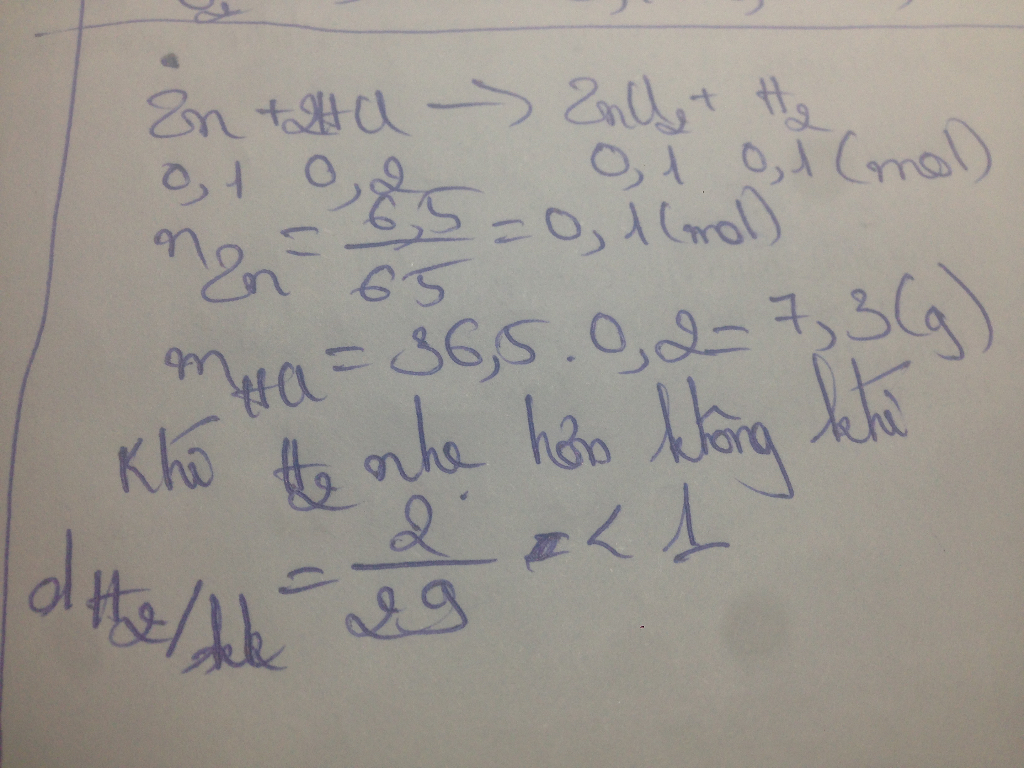 Zn + 2HCl → ZnCl₂ + H₂
0,1 0,2 0,1 0,1 (mol)
n_Zn = 6,5/65 = 0,1 (mol)
m_HCl = 36,5 . 0,2 = 7,3 (g)
Khí H₂ nhẹ hơn không khí
d H₂/kk = 2/29 < 1